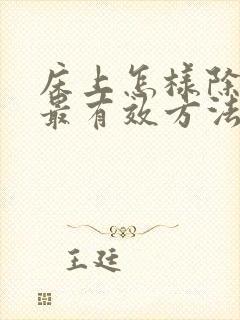 床上怎樣除
最有效方法
王廷